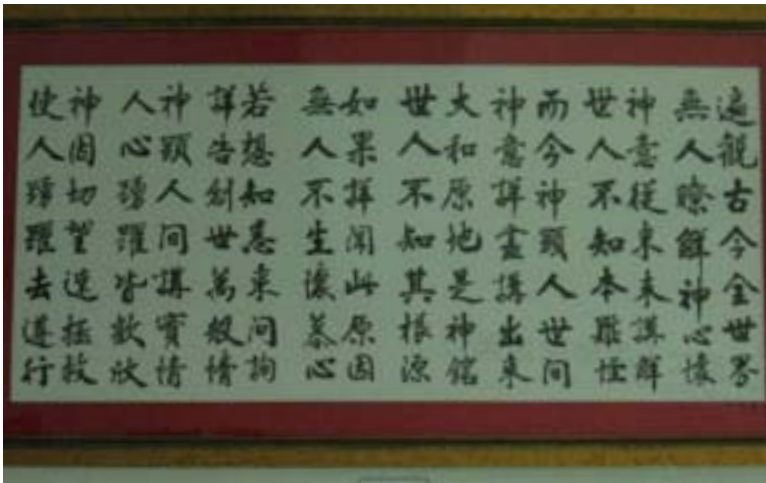 遍觀古今全世界
無人瞭解神心懷
神意從來未講解
世人不知本難怪
而今神顯人世間
神意詳盡講出來
大和原地是神館
世人不知其根源
如果詳聞此原因
無人不生懷慕心
若想知悉來問詢
詳告創世萬般情
神顯人間講實情
人心踴躍皆歡欣
神因切望速拯救
使人踴躍去遵行